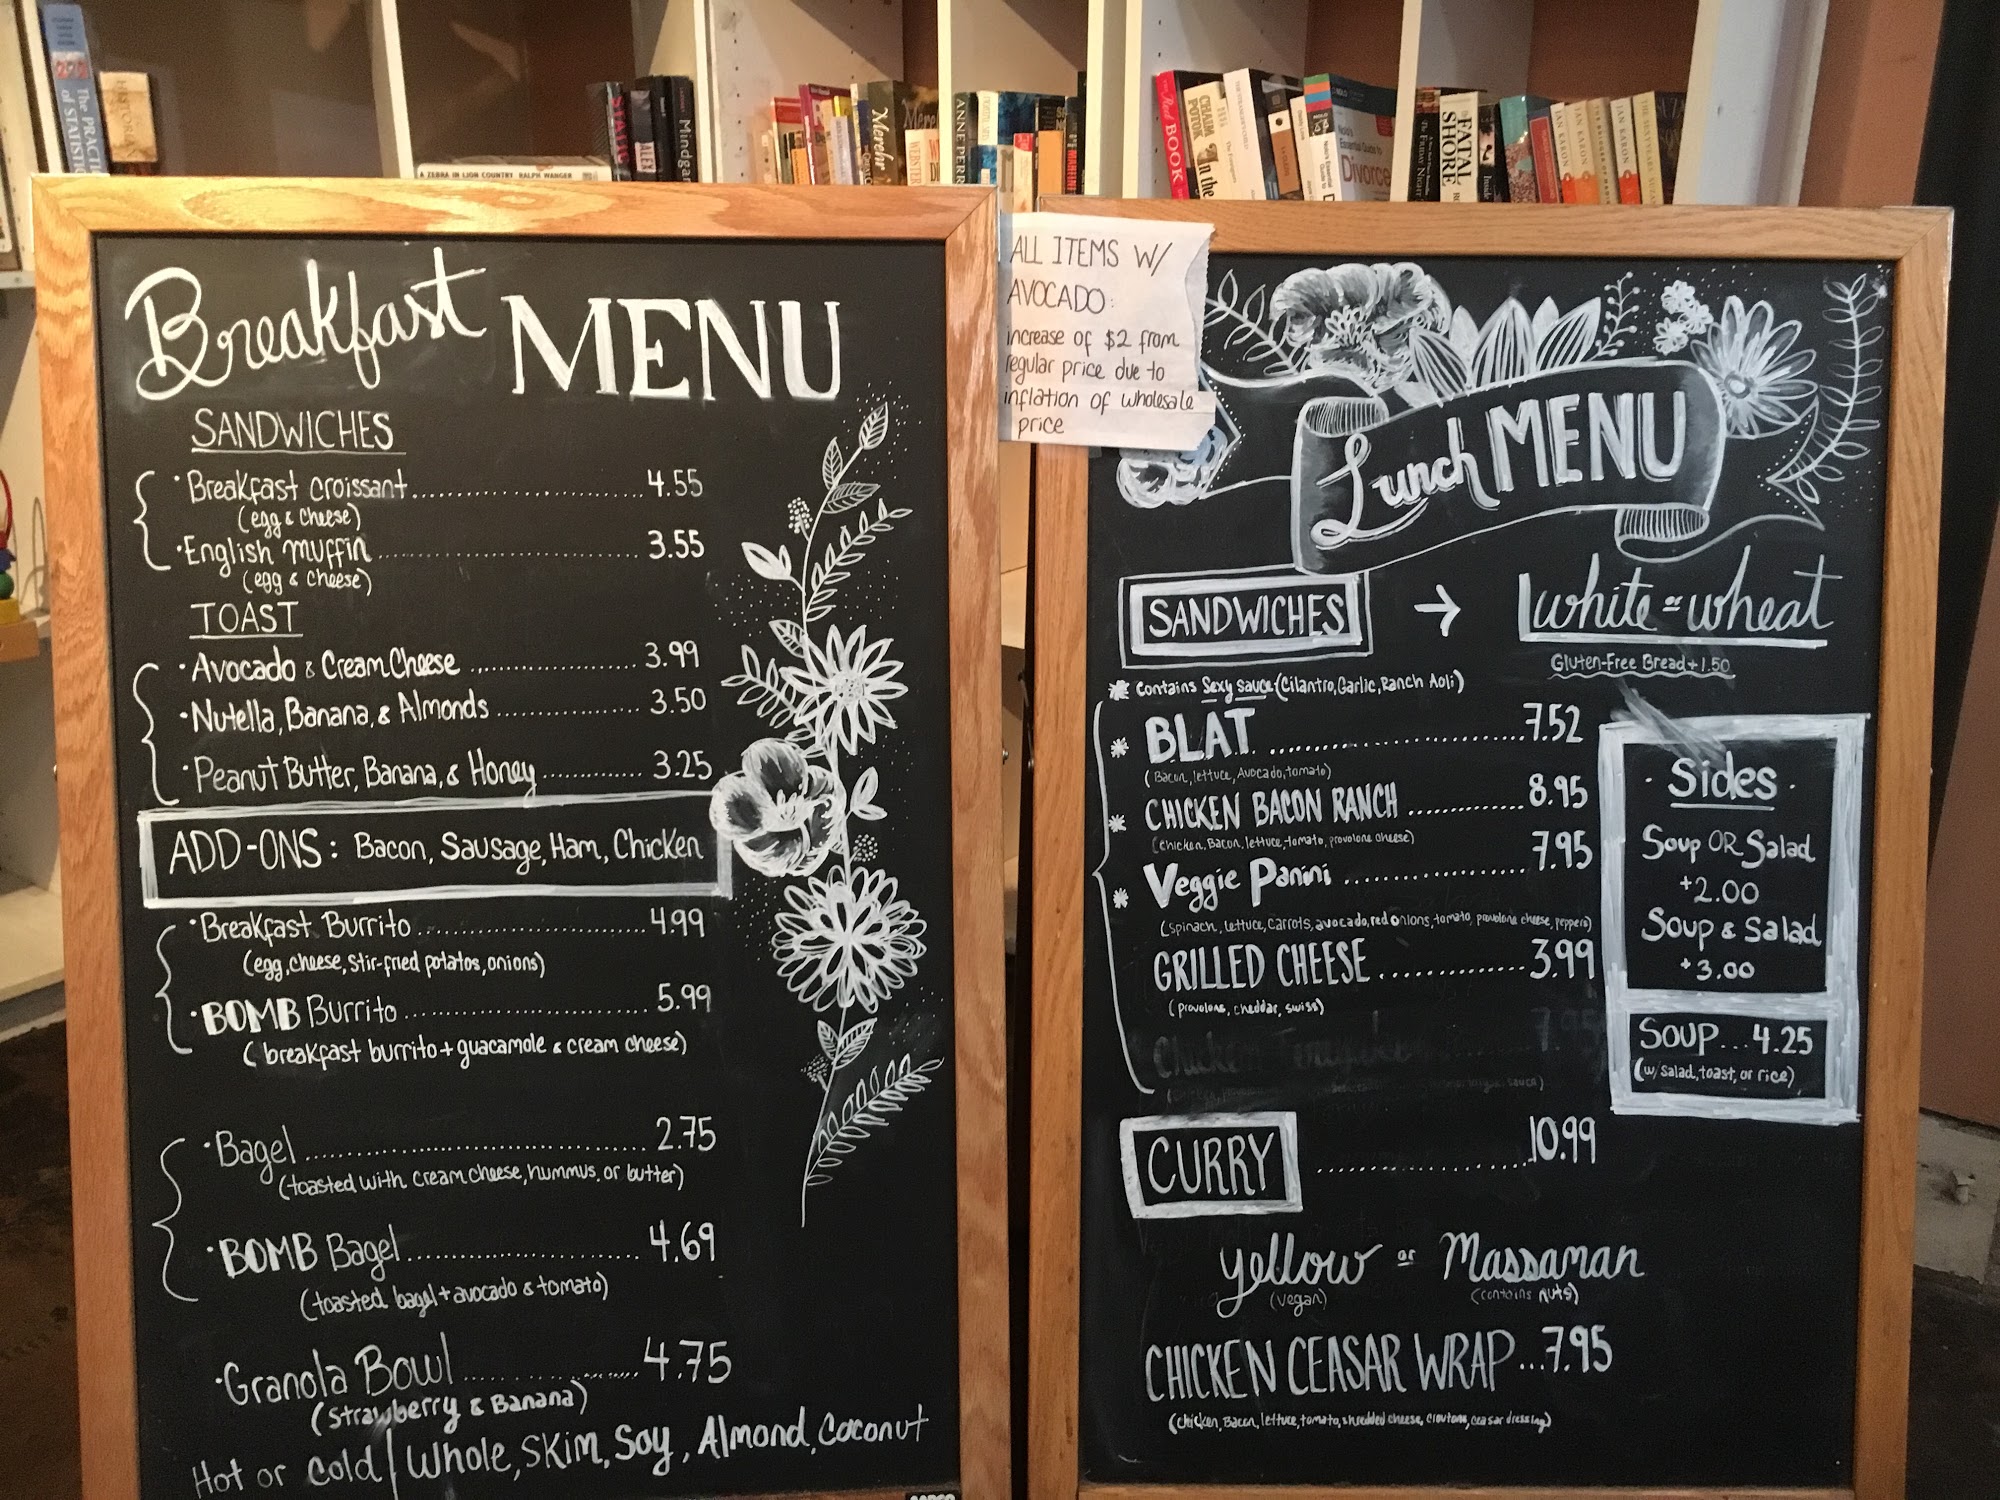 The PRACTI
of STATISTI
HISTORIAN
A ZEBRA IN LION COUNTRY RALPH WANGER
STATIC
ALEX
Mindga
Merehr
Mere
WEBSTER
ANNE PERR
The Red BOOK
CHAIM
POTOK
In the
Nolo's
Essential Guide to
Divorce
THE FRIDAY NIGHT
FATAL
SHORE
Inside
JAN KARON
JAN KARON
Breakfast MENU
SANDWICHES
·Breakfast croissant........................4.55
(egg & cheese)
·English muffin............................3.55
(egg & cheese)
TOAST
·Avocado & Cream Cheese ....................3.99
·Nutella, Banana, & Almonds ................3.50
·Peanut Butter, Banana, & Honey.............3.25
ADD-ONS: Bacon, Sausage, Ham, Chicken
·Breakfast Burrito..........................4.99
(egg, cheese, stir-fried potatos, onions)
·BOMB Burrito..............................5.99
(breakfast burrito + guacamole & cream cheese)
·Bagel.....................................2.75
(toasted with cream cheese, hummus, or butter)
·BOMB Bagel................................4.69
(toasted bagel + avocado & tomato)
·Granola Bowl..............................4.75
(strawberry & Banana)
Hot or cold / Whole, SKim, Soy, Almond, Coconut
ALL ITEMS W/
AVOCADO:
increase of $2 from
regular price due to
inflation of wholesale
price
Lunch MENU
SANDWICHES → white or wheat
Gluten-Free Bread +1.50
* contains Sexy sauce (Cilantro, Garlic, Ranch Aoli)
* BLAT ...........................7.52
(Bacon, lettuce, Avocado, tomato)
* CHICKEN BACON RANCH ............8.95
(chicken, Bacon, lettuce, tomato, provolone cheese)
* Veggie Panini ..................7.95
(spinach, lettuce, carrots, avocado, red onions, tomato, provolone cheese, peppers)
GRILLED CHEESE...................3.99
(provolone, cheddar, swiss)
Chicken 7.95
sauce)
· Sides ·
Soup OR Salad
+2.00
Soup & Salad
+3.00
SOUP...4.25
(w/ salad, toast, or rice)
CURRY ........................10.99
yellow or Massaman
(vegan) (contains nuts)
CHICKEN CEASAR WRAP...7.95
(chicken, Bacon, lettuce, tomato, shredded cheese, croutons, ceasar dressing)